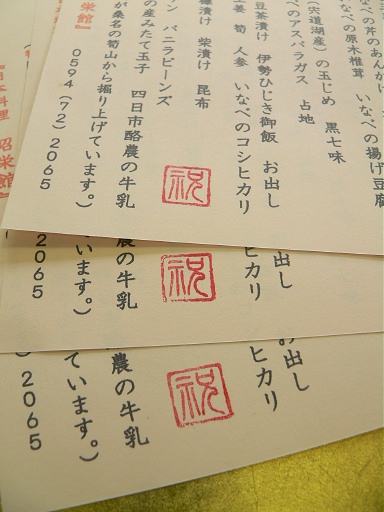 なべの芹のあんかけ
なべの原木椎茸 いなべの揚げ豆腐
(宍道湖産)の玉じめ 黒七味
べのアスパラガス 占地
豆茶漬け 伊勢ひじき御飯 お出し
生姜 筍 人参 いなべのコシヒカリ
漬け 柴漬け 昆布
祝
ン バニラビーンズ
の産みたて玉子 四日市酪農の牛乳
が桑名の筍山から掘り上げています。)
0594(72)2065
栄館』
お出し
ヒカリ
祝
農の牛乳
います。)
2065
日本料理 昭栄館』
お出し
ヒカリ
祝
農の牛乳
ています。)
)2065